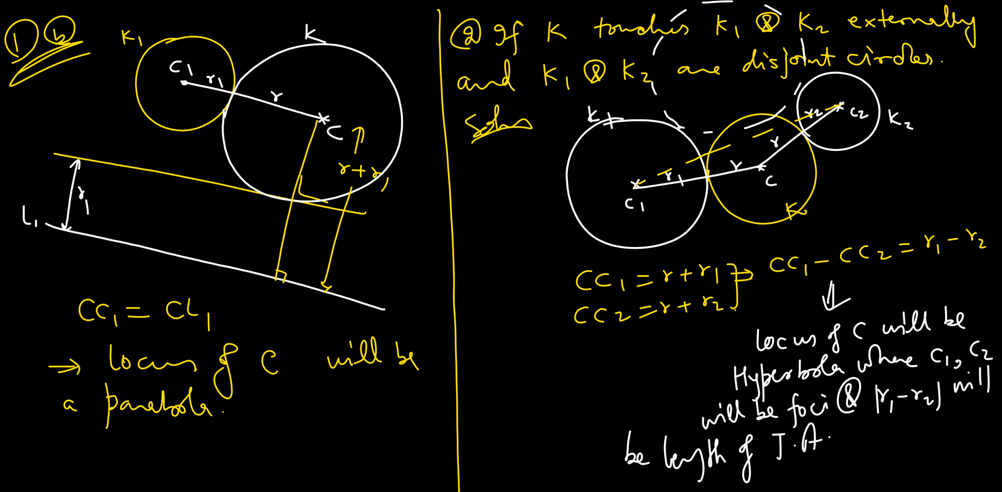 ① ⓑ
K₁
C₁
r₁
r
K
C
r+r₁
r₁
L₁
CC₁ = CL₁
→ locus of C will be
a parabola.
② If K touches K₁ & K₂ externally
and K₁ & K₂ are disjoint circles.
Soln
K₁
C₁
r₁
r
C
K
r
r₂
C₂
K₂
CC₁ = r+r₁
CC₂ = r+r₂
⇒ CC₁ - CC₂ = r₁ - r₂
⇓
locus of C will be
Hyperbola where C₁, C₂
will be foci & |r₁-r₂| will
be length of T.A.